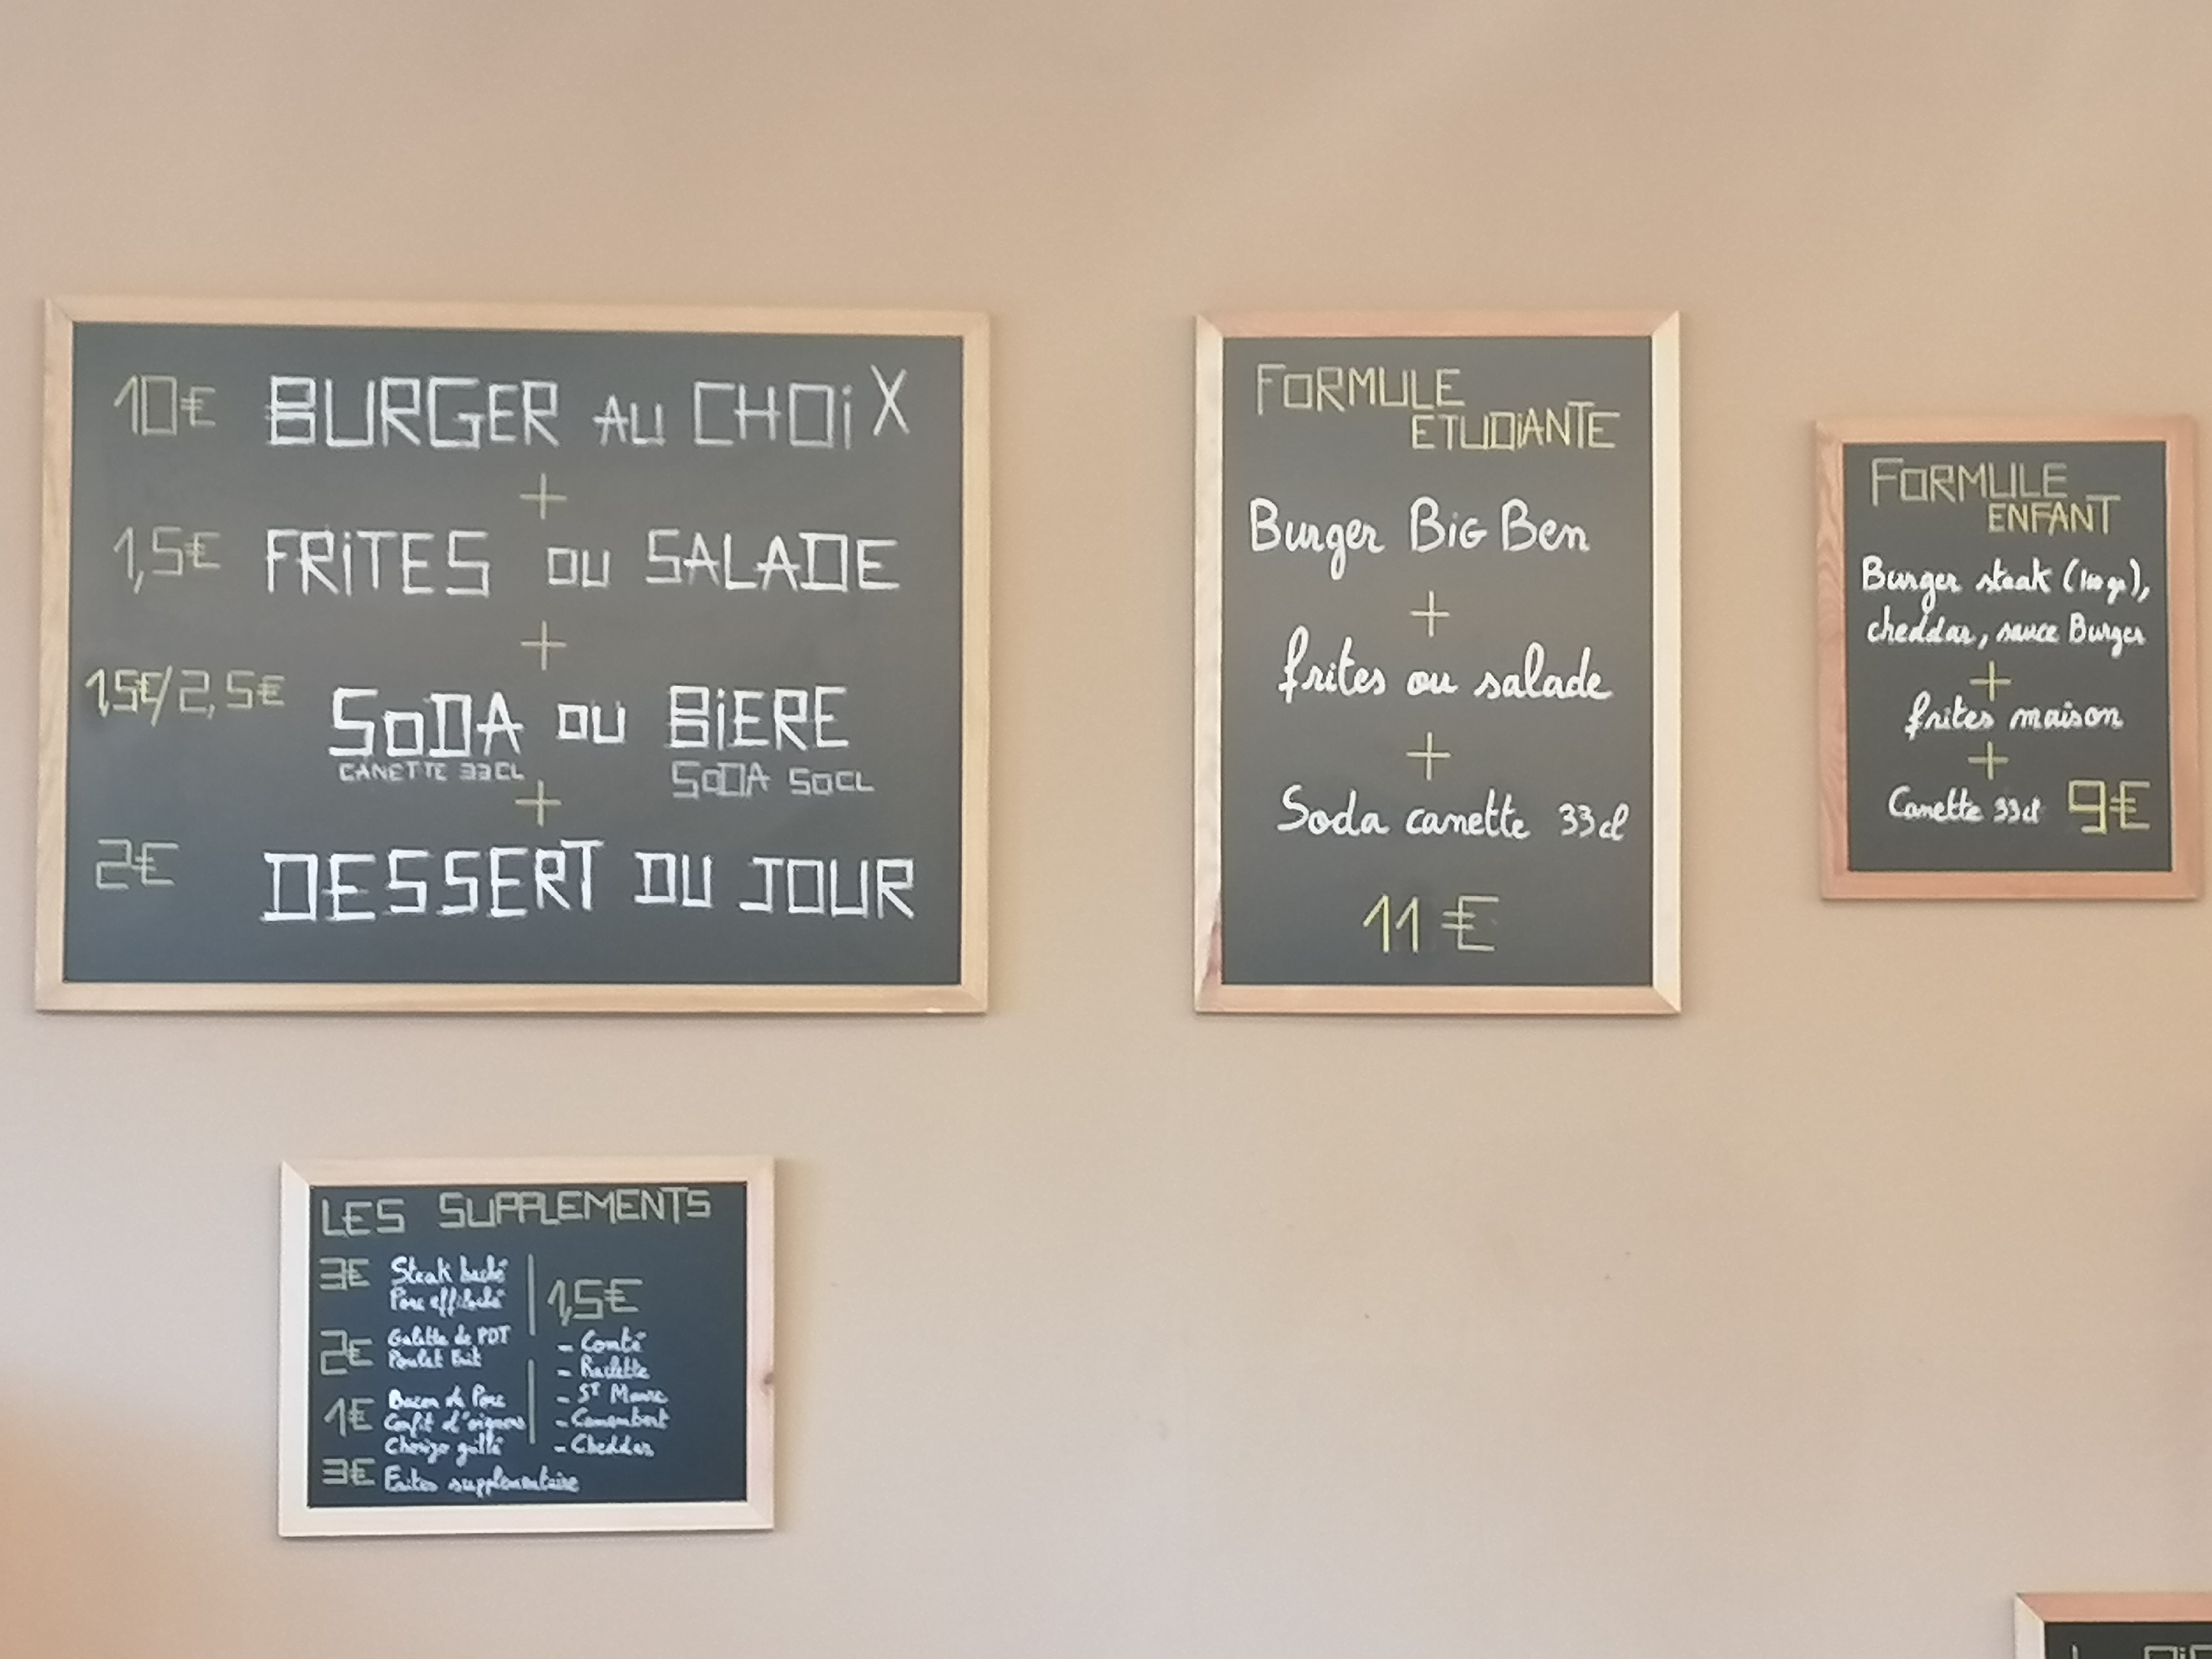 10€ BURGER AU CHOiX
+
1,5€ FRiTES OU SALADE
+
1,5€/2,5€ SODA OU BiERE
CANETTE 33CL SODA 50CL
+
2€ DESSERT DU JOUR
FORMULE
ETUDiANTE
Burger BiG Ben
+
frites ou salade
+
Soda canette 33cl
11€
FORMULE
ENFANT
Burger steak (100gr),
cheddar, sauce Burger
+
frites maison
+
Canette 33cl 9€
LES SUPPLEMENTS
3€ Steak haché
Porc effiloché
2€ Galette de PDT
Poulet frit
1€ Bacon de Porc
Confit d'oignons
Chorizo grillé
3€ Frites supplementaire
1,5€
- Comté
- Raclette
- ST Maure
- Camembert
- Cheddar